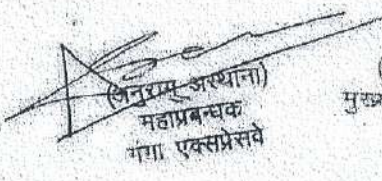 (अनुराग अस्थाना)
महाप्रबन्धक
गंगा एक्सप्रेसवे